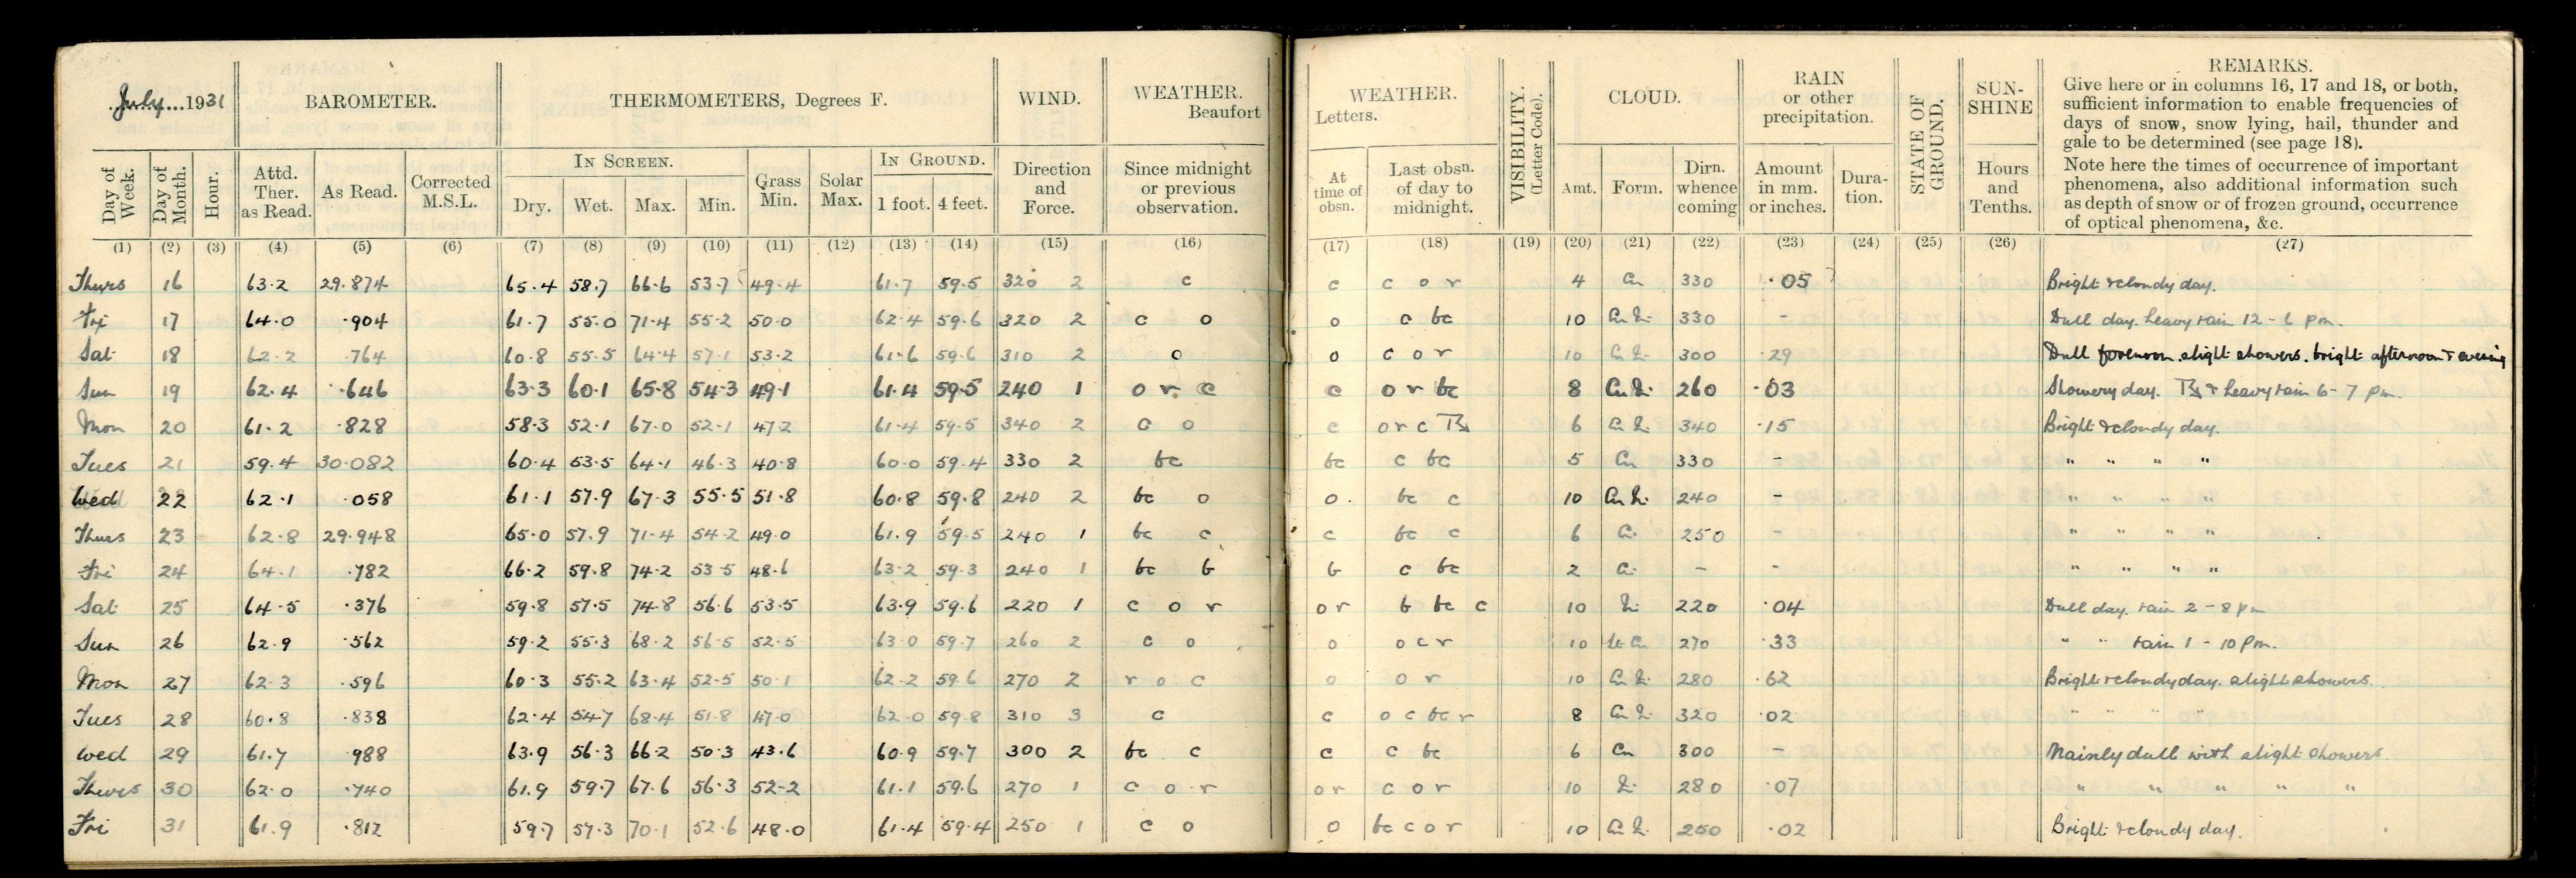 July 1931
BAROMETER.
THERMOMETERS, Degrees F.
WIND.
WEATHER.
Beaufort
WEATHER.
Letters.
VISIBILITY.
(Letter Code).
CLOUD.
RAIN
or other
precipitation.
STATE OF
GROUND.
SUN-
SHINE
REMARKS.
Give here or in columns 16, 17 and 18, or both,
sufficient information to enable frequencies of
days of snow, snow lying, hail, thunder and
gale to be determined (see page 18).
Note here the times of occurrence of important
phenomena, also additional information such
as depth of snow or of frozen ground, occurrence
of optical phenomena, &c.
Day of Week.
Day of Month.
Hour.
Attd. Ther. as Read.
As Read.
Corrected M.S.L.
IN SCREEN.
Dry. Wet. Max. Min.
Grass Min.
Solar Max.
IN GROUND.
1 foot. 4 feet.
Direction and Force.
Since midnight or previous observation.
At time of obsn.
Last obsn. of day to midnight.
Amt. Form.
Dirn. whence coming
Amount in mm. or inches.
Dura-tion.
Hours and Tenths.
(1) (2) (3) (4) (5) (6) (7) (8) (9) (10) (11) (12) (13) (14) (15) (16) (17) (18) (19) (20) (21) (22) (23) (24) (25) (26) (27)
Thurs 16 63.2 29.874 65.4 58.7 66.6 53.7 49.4 61.7 59.5 320 2 c c c o r 4 Cu 330 .05 Bright & cloudy day.
Fri 17 64.0 .904 61.7 55.0 71.4 55.2 50.0 62.4 59.6 320 2 c o o c bc 10 Cu 330 - Dull day. heavy rain 12 - 6 pm.
Sat 18 62.2 .764 60.8 55.5 64.4 57.1 53.2 61.6 59.6 310 2 o o c o r 10 Cu 300 .29 Dull forenoon. slight showers. bright afternoon & evening
Sun 19 62.4 .646 63.3 60.1 65.8 54.3 49.1 61.4 59.5 240 1 o r c c o r bc 8 Cu 260 .03 Showery day. & heavy rain 6 - 7 pm.
Mon 20 61.2 .828 58.3 52.1 67.0 52.1 47.2 61.4 59.5 340 2 c o c o r c 6 Cu 340 .15 Bright & cloudy day.
Tues 21 59.4 30.082 60.4 53.5 64.1 46.3 40.8 60.0 59.4 330 2 bc bc c bc 5 Cu 330 - " " " "
Wed 22 62.1 .058 61.1 57.9 67.3 55.5 51.8 60.8 59.8 240 2 bc o o. bc c 10 Cu 240 - " " " "
Thurs 23 62.8 29.948 65.0 57.9 71.4 54.2 49.0 61.9 59.5 240 1 bc c c bc c 6 250 - " " " "
Fri 24 64.1 .782 66.2 59.8 74.2 53.5 48.6 63.2 59.3 240 1 bc b b c bc 2 - - " " " "
Sat 25 64.5 .376 59.8 57.5 74.8 56.6 53.5 63.9 59.6 220 1 c o r o r b bc c 10 220 .04 Dull day. rain 2 - 8 pm
Sun 26 62.9 .562 59.2 55.3 68.2 56.5 52.5 63.0 59.7 260 2 c o o o c r 10 270 .33 " " rain 1 - 10 pm.
Mon 27 62.3 .596 60.3 55.2 63.4 52.5 50.1 62.2 59.6 270 2 r o c o o r 10 Cu 280 .62 Bright & cloudy day. slight showers.
Tues 28 60.8 .838 62.4 54.7 68.4 51.8 47.0 62.0 59.8 310 3 c c o c bc r 8 Cu 320 .02 " " " "
Wed 29 61.7 .988 63.9 56.3 66.2 50.3 43.6 60.9 59.7 300 2 bc c c c bc 6 Cu 300 - Mainly dull with slight showers.
Thurs 30 62.0 .740 61.9 59.7 67.6 56.3 52.2 61.1 59.6 270 1 c o r o r c o r 10 280 .07 " " " " "
Fri 31 61.9 .812 59.7 57.3 70.1 52.6 48.0 61.4 59.4 250 1 c o o bc c o r 10 Cu 250 .02 Bright & cloudy day.